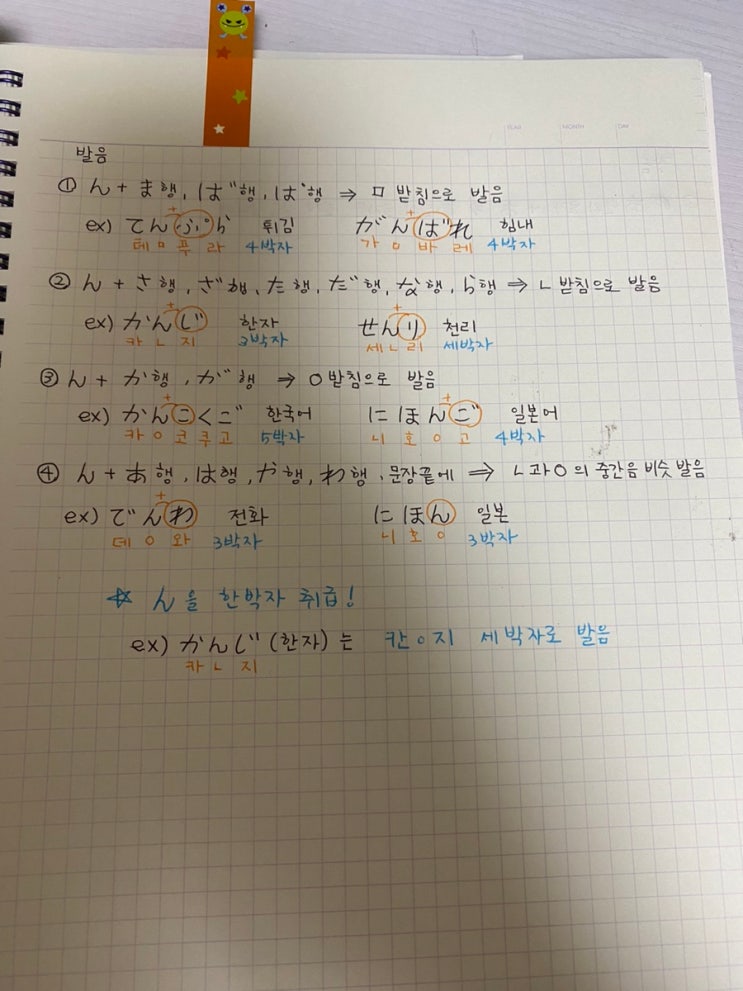 YEAR MONTH DAY
발음
① ん + ま행, ば행, ぱ행 ⇒ ㅁ 받침으로 발음
ex) てんぷら 튀김 がんばれ 힘내
테 ㅁ 푸 라 4박자 가 ㅁ 바 레 4박자
② ん + さ행, ざ행, た행, だ행, な행, ら행 ⇒ ㄴ 받침으로 발음
ex) かんじ 한자 せんり 천리
카 ㄴ 지 3박자 세 ㄴ 리 세박자
③ ん + か행, が행 ⇒ ㅇ받침으로 발음
ex) かんこくご 한국어 にほんご 일본어
카 ㅇ 코 쿠 고 5박자 니 호 ㅇ 고 4박자
④ ん + あ행, は행, や행, わ행, 문장끝에 ⇒ ㄴ과ㅇ의 중간음 비슷 발음
ex) でんわ 전화 にほん 일본
데 ㅇ 와 3박자 니 호 ㅇ 3박자
☆ ん을 한박자 취급!
ex) かんじ (한자)는 칸ㅇ지 세박자로 발음
카 ㄴ 지